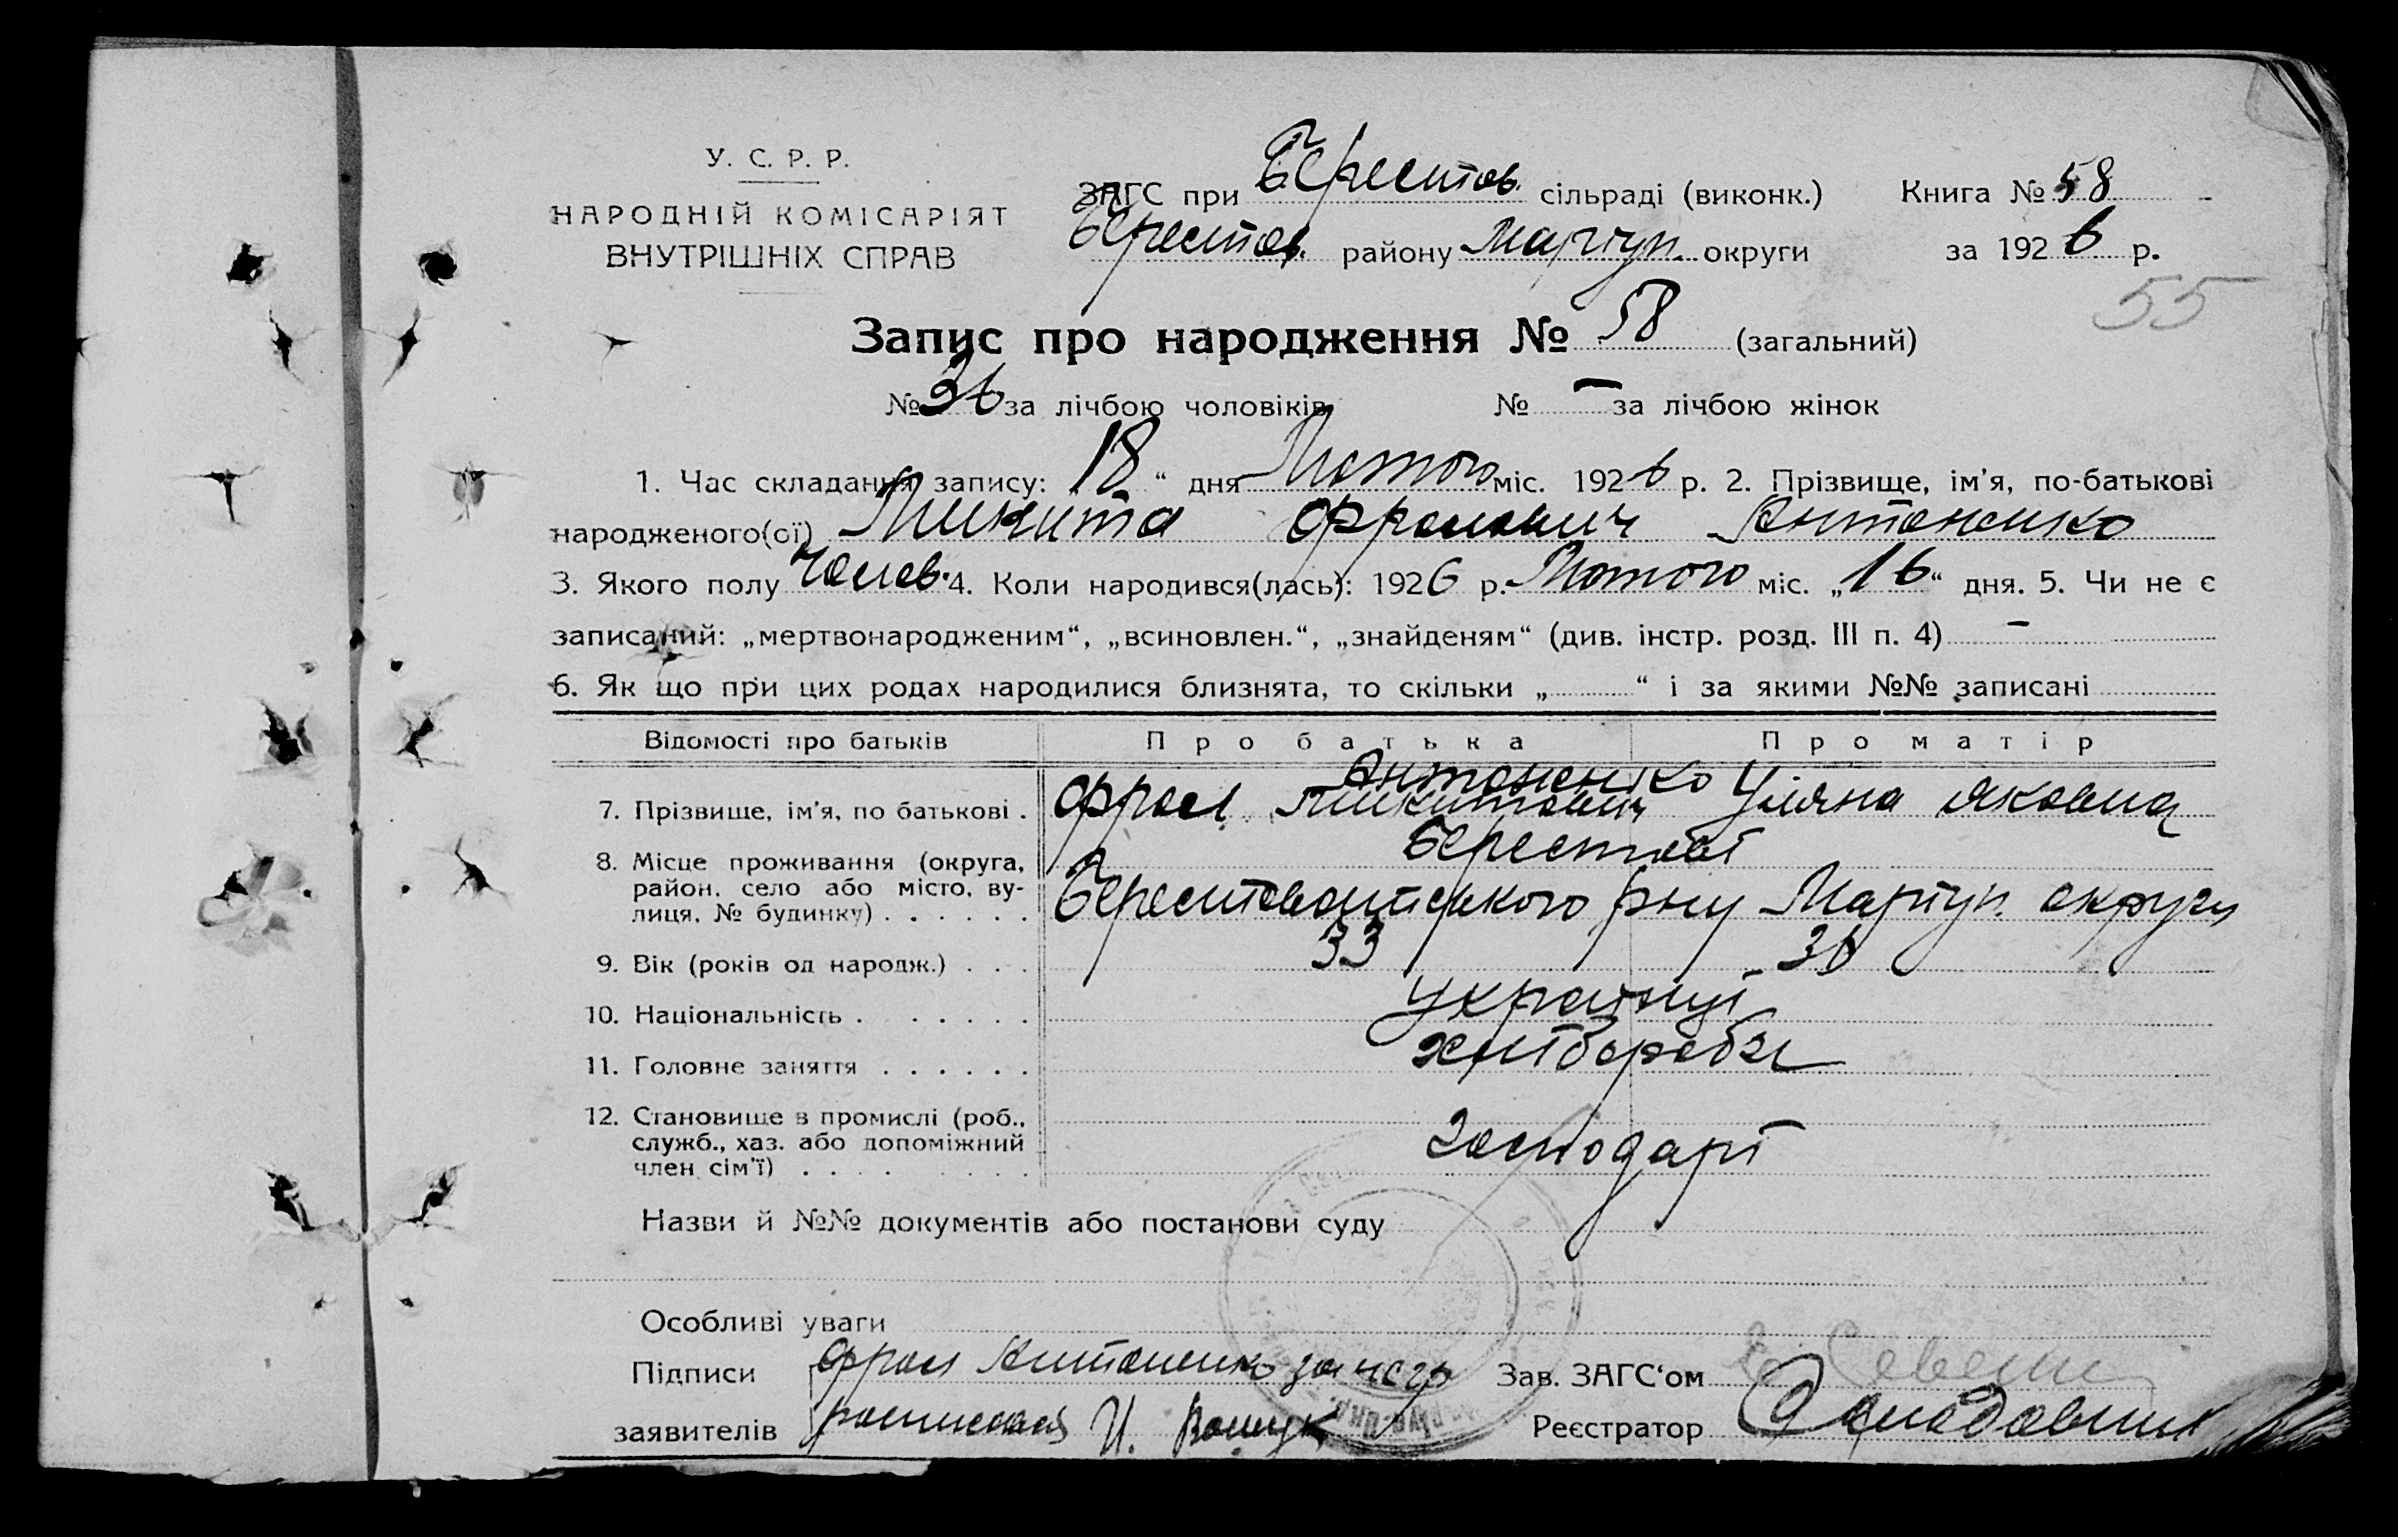 У. С. Р. Р.
НАРОДНІЙ КОМІСАРІЯТ
ВНУТРІШНІХ СПРАВ
ЗАГС при Берестов. сільраді (виконк.) Книга № 58
Берестов. району Маріуп. округи за 1926 р.
55
Запис про народження № 58 (загальний)
№ 36 за лічбою чоловіків № — за лічбою жінок
1. Час складання запису: 18 “ дня Лютого міс. 1926 р. 2. Прізвище, ім’я, по-батькові
народженого(ої) Микита Фролович Антоненко
3. Якого полу Чолов. 4. Коли народився(лась): 1926 р. Лютого міс. „16“ дня. 5. Чи не є
записаний: „мертвонародженим“, „всиновлен.“, „знайденям“ (див. інстр. розд. III п. 4) —
6. Як що при цих родах народилися близнята, то скільки „ “ і за якими №№ записані
Відомості про батьків Про батька Про матір
Антоненко
7. Прізвище, ім’я, по батькові . Фрол Микитович Уляна Яковна
8. Місце проживання (округа, Берестові
район, село або місто, ву-
лиця, № будинку) . . . . . . Берестоватського рну Маріуп. округи
9. Вік (років од народж.) . . . 33 36
10. Національність . . . . . . . українці
11. Головне заняття . . . . . . хліббороби
12. Становище в промислі (роб.,
служб., хаз. або допоміжний господарі
член сім’ї) . . . . . . . .
Назви й №№ документів або постанови суду
Особливі уваги
Підписи Фрол Антоненко за негр Зав. ЗАГС‘ом
заявителів И. Реєстратор